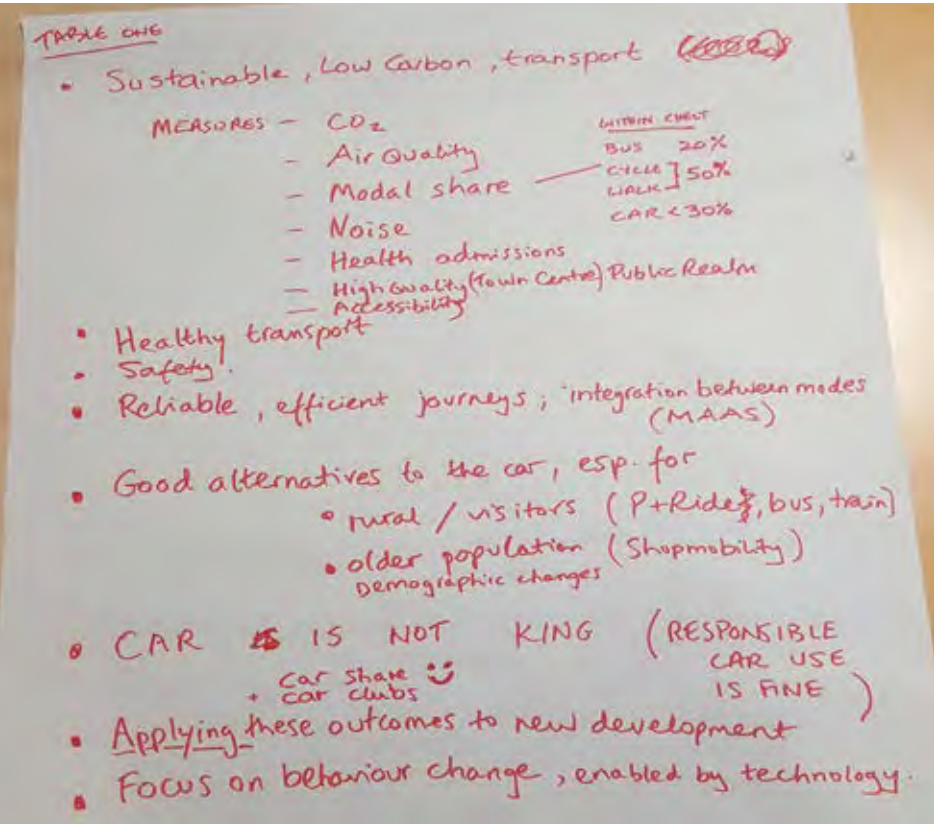 TABLE ONE
• Sustainable, Low Carbon, transport
MEASURES - CO2
- Air Quality
- Modal share
- Noise
- Health admissions
- High Quality (Town Centre) Public Realm
- Accessibility
WITHIN CHELT
BUS 20%
CYCLE ] 50%
WALK
CAR < 30%
• Healthy transport
• Safety!
• Reliable, efficient journeys; integration between modes
(MAAS)
• Good alternatives to the car, esp. for
• rural / visitors (P+Ride, bus, train)
• older population (Shopmobility)
Demographic changes
• CAR IS NOT KING (RESPONSIBLE
CAR USE
IS FINE)
car share
+ car clubs
• Applying these outcomes to new development
• Focus on behaviour change, enabled by technology.